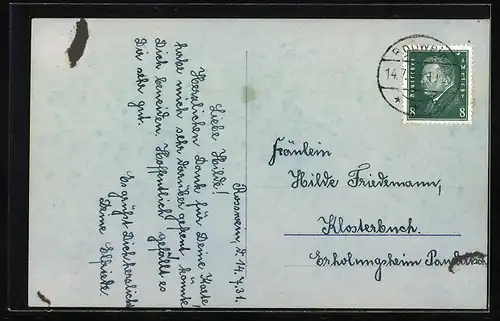 Rosswein, d. 14.7.31.
Liebe Hilde!
Herzlichen Dank für Deine Karte,
habe mich sehr darüber gefreut, könnte
Dich beneiden. Hoffentlich gefällt es
Dir sehr gut.
Es grüßt Dich herzlichst
Deine Elfriede.
14.7.
Deutsches Reich
8 8
Fräulein
Hilde Friedemann,
Klosterbuch.
Erholungsheim